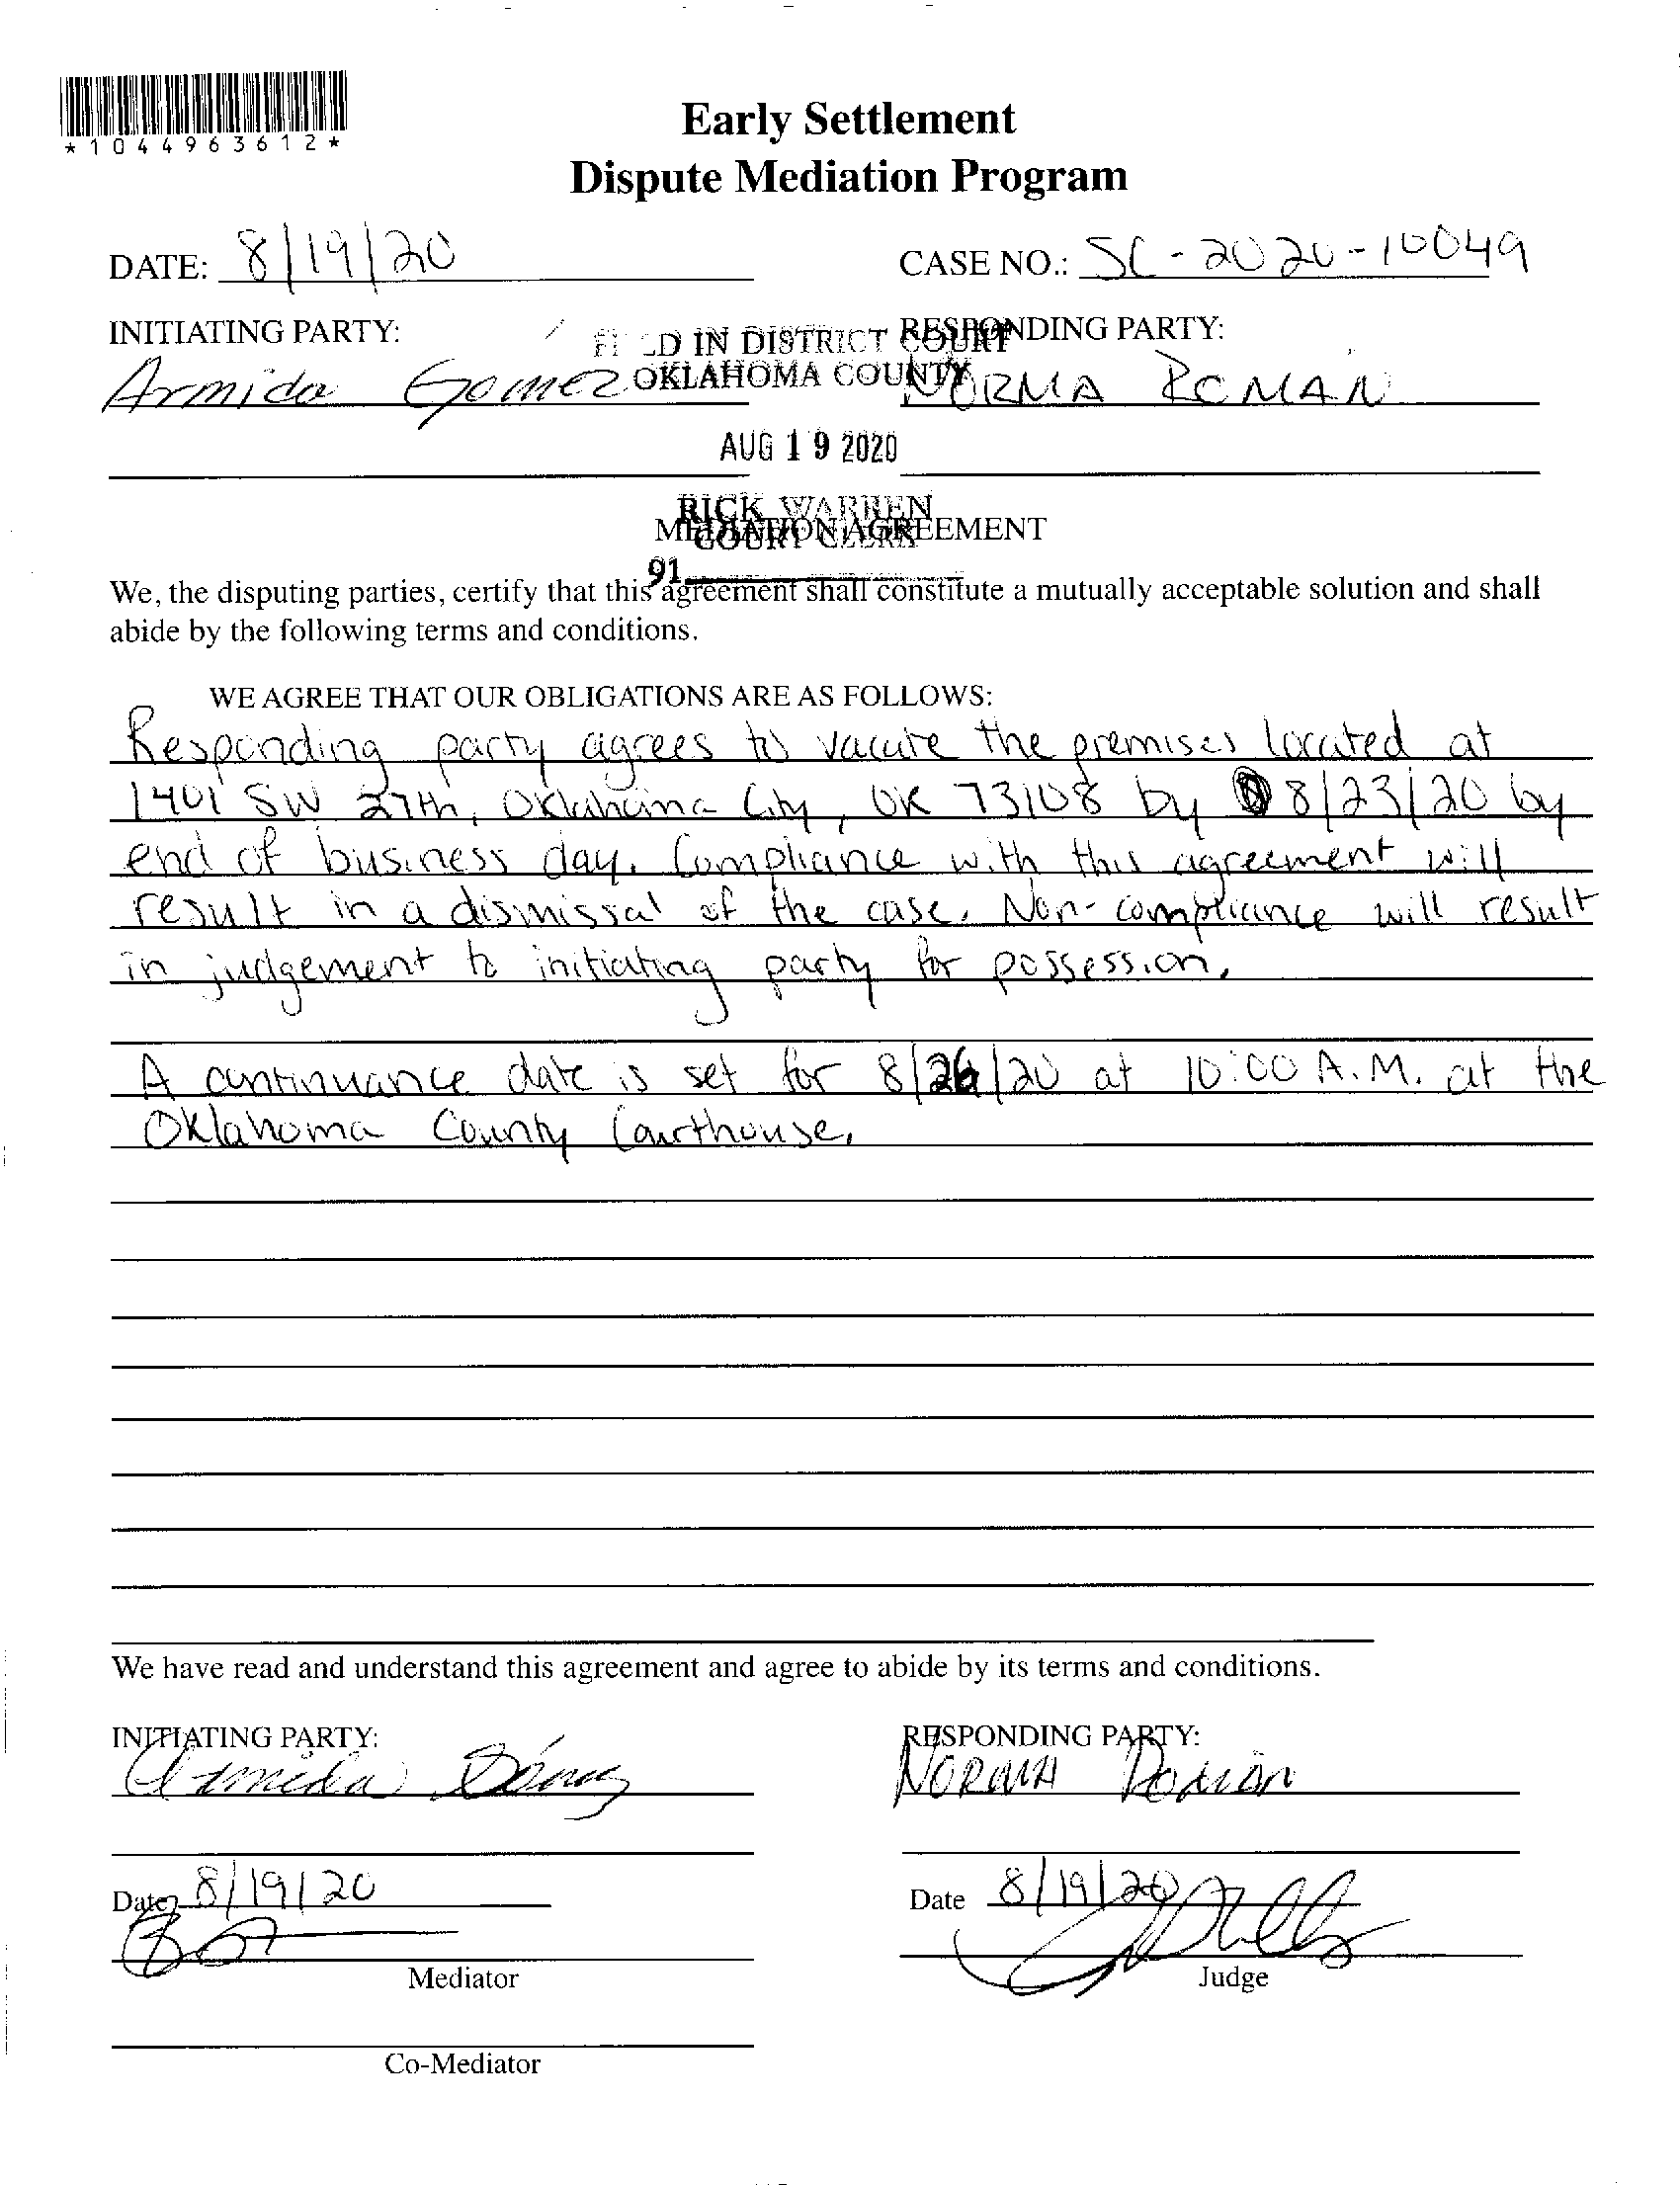 *1044963612*
Early Settlement
Dispute Mediation Program
DATE: 8/19/20 CASE NO.: SC-2020-10049
INITIATING PARTY: RESPONDING PARTY:
FILED IN DISTRICT COURT
OKLAHOMA COUNTY
Armida Gomez NORMA ROMAN
AUG 19 2020
RICK WARREN
COURT CLERK
MEDIATION AGREEMENT
91
We, the disputing parties, certify that this agreement shall constitute a mutually acceptable solution and shall
abide by the following terms and conditions.
WE AGREE THAT OUR OBLIGATIONS ARE AS FOLLOWS:
Responding party agrees to vacate the premises located at
1401 SW 27th, Oklahoma City, OK 73108 by 8/23/20 by
end of business day. Compliance with this agreement will
result in a dismissal of the case. Non-compliance will result
in judgement to initiating party for possession.
A continuance date is set for 8/26/20 at 10:00 A.M. at the
Oklahoma County Courthouse.
We have read and understand this agreement and agree to abide by its terms and conditions.
INITIATING PARTY: RESPONDING PARTY:
Armida Gómez NORMA Román
Date 8/19/20 Date 8/19/20
Mediator Judge
Co-Mediator